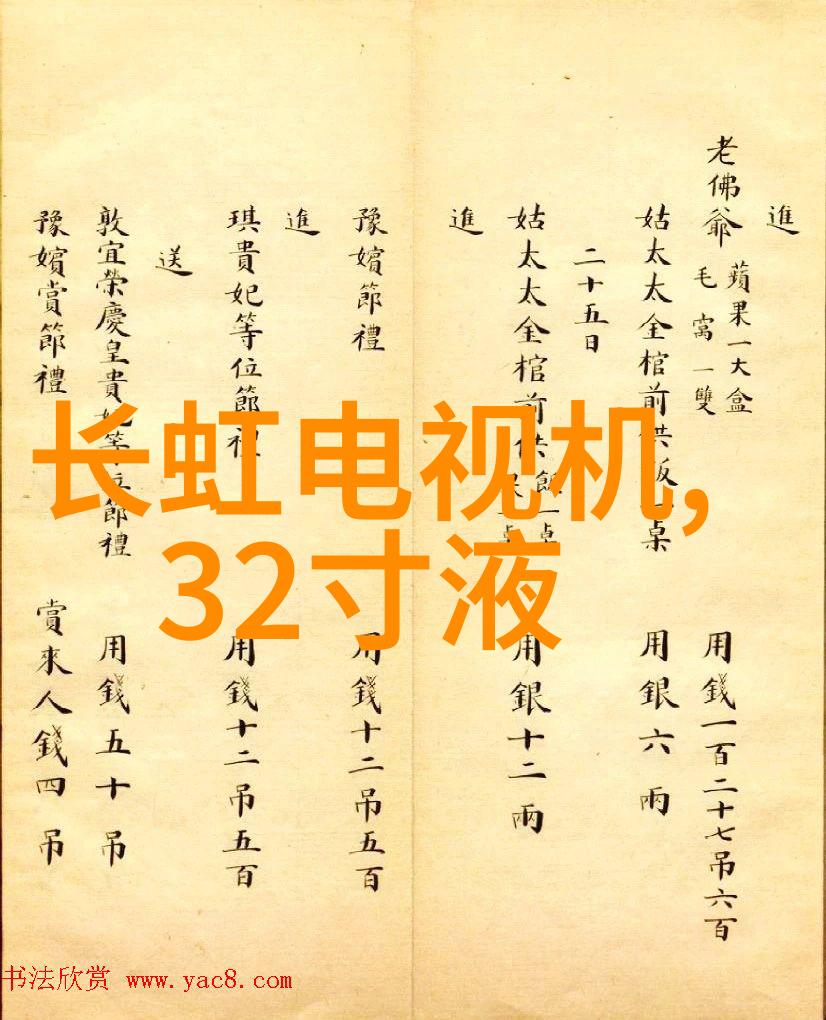 進
老佛爺 蘋果一大盒 毛窩一雙 用錢一百二十七吊六百
姑太太金棺前供飯一桌 用銀六兩
二十五日
姑太太金棺前供飯一桌 用銀十二兩
進
豫嬪節禮 用錢十二吊五百
進
琪貴妃等位節禮 用錢十二吊五百
送
敦宜榮慶皇貴妃等位節禮 用錢五十吊
豫嬪賞節禮 賞來人錢四吊
长虹电视机,
32寸液
书法欣赏 www.yac8.com